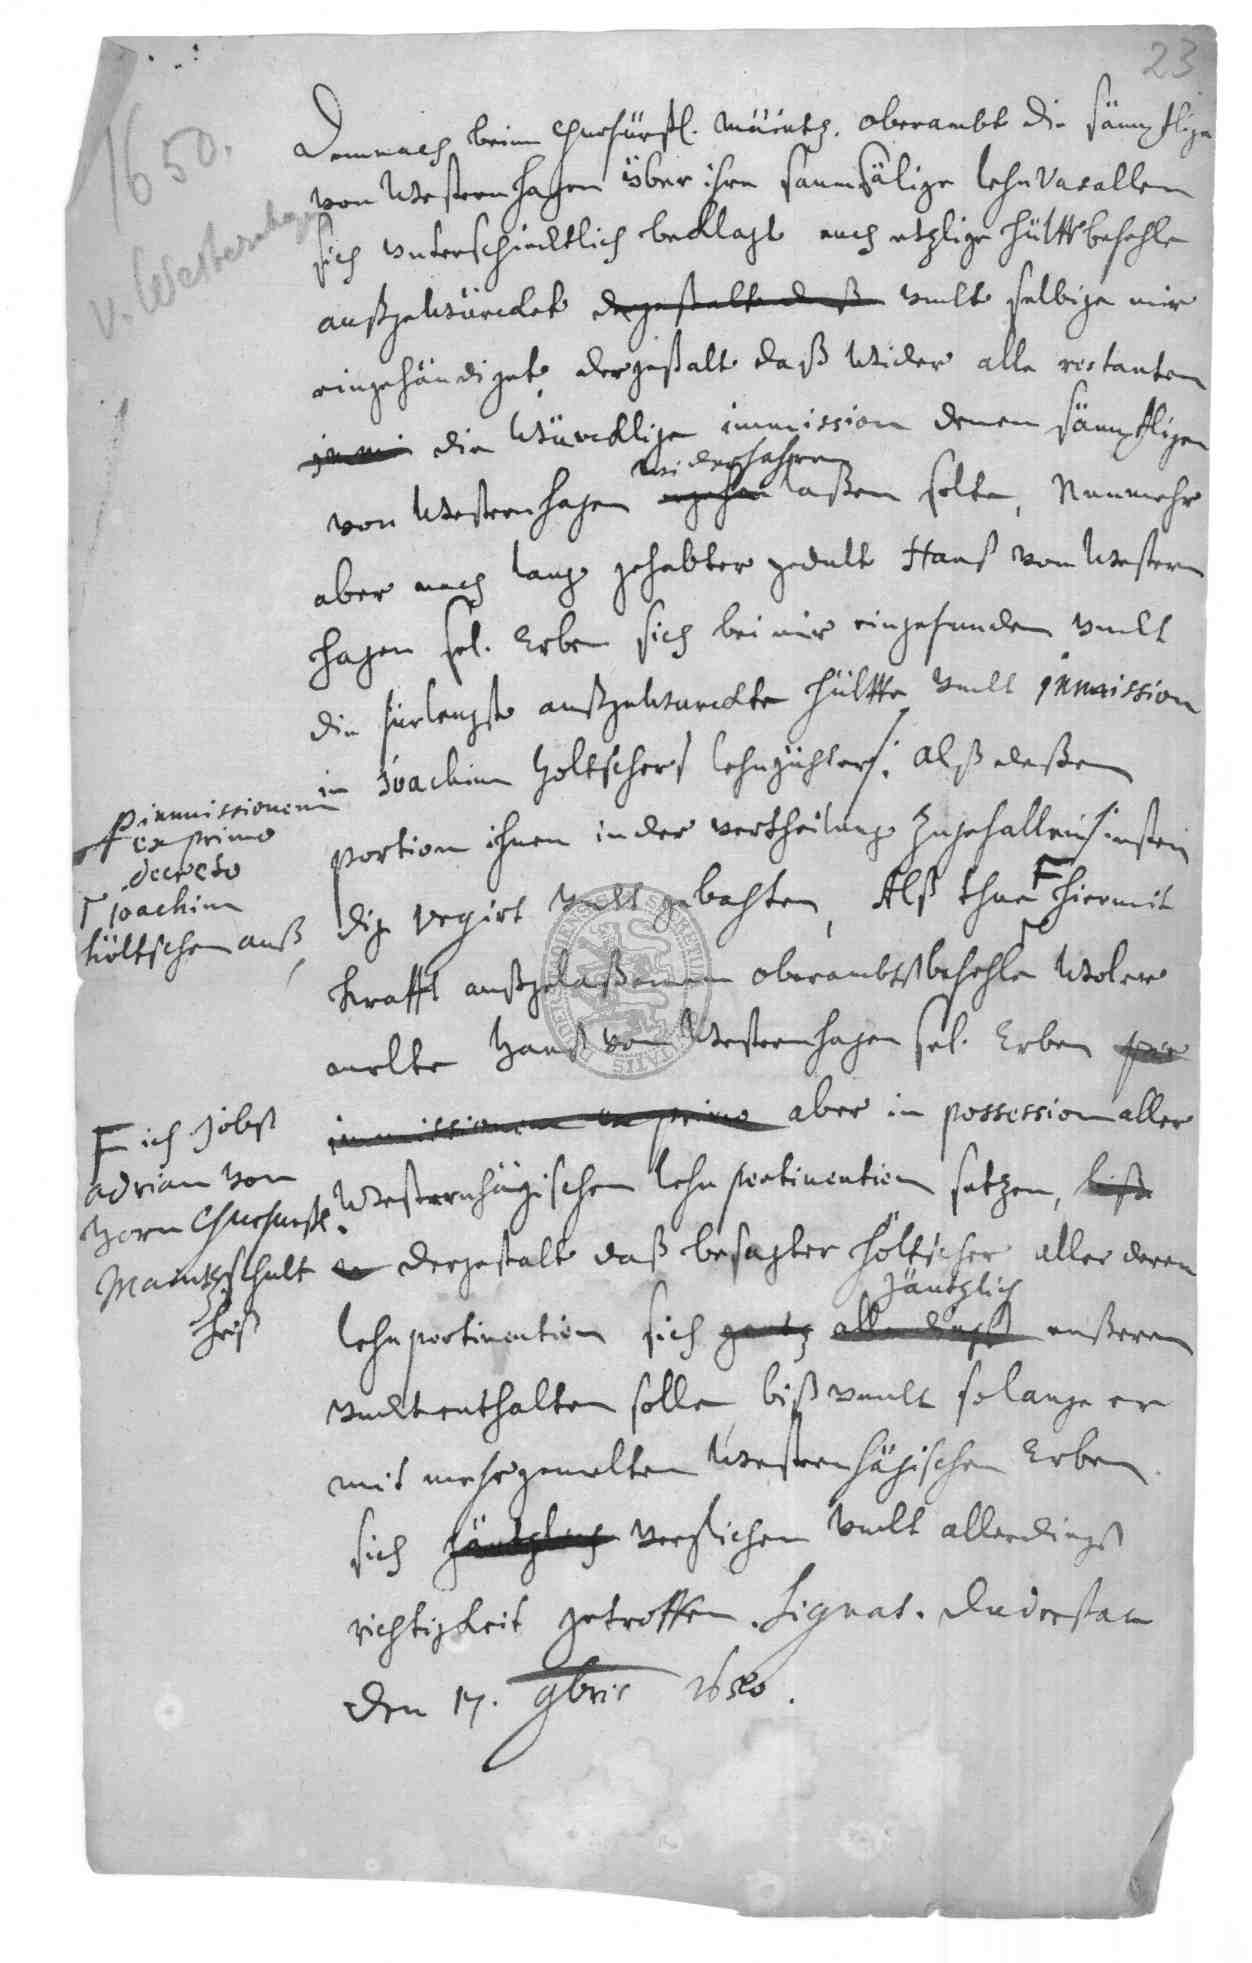 23
1650.
v. Westernhagen
Demnach beim Churfürstl. Mäintz. oberambt die sämptlige
von Westernhagen über ihre saumsälige lehn Vasallen
sich unterschiedtlich beclagt auch etzlige hülffsbefehle
außgewürcket dergestalt daß undt selbige mir
eingehändiget, dergestalt daß wider alle restanten
immi die würcklige immission denen sämptligen
widerfahren
von Westernhagen laßen solte, Nunmehr
aber nach lang gehabter gedult Hanß von Western
hagen sel. Erben sich bei mir eingefunden undt
die fürlengst außgewurckte hülffe undt immission
in Joachim Höltschers lehngühter /: alß deßen
portion ihnen in der vertheilung zugefallen :/ insten
dig urgirt undt gebehten, Alß thue F hiermit
Krafft außgelaßenen oberambtsbefehls Woler
melte Hanß von Westernhagen sel. Erben per
immissionem ex primo aber in possession aller
Westernhägischen lehn pertinentien setzen, biß
dergestalt daß besagter Höltscher aller deren
gäntzlich
lehn pertinentien sich gantz allerdings eußeren
undt enthalten solle biß undt solange er
mit mehrgemelten Westernhägischen Erben
sich gäntzlich verglichen undt allerdings
richtigkeit getroffen. Signat. Duderstat
den 17. 9bris 1650.
p immissionem
ex primo
decreto
Joachim
Höltschen auß
F ich Jobst
Adrian von
Horn Churfürstl.
Maintz schult
heiß